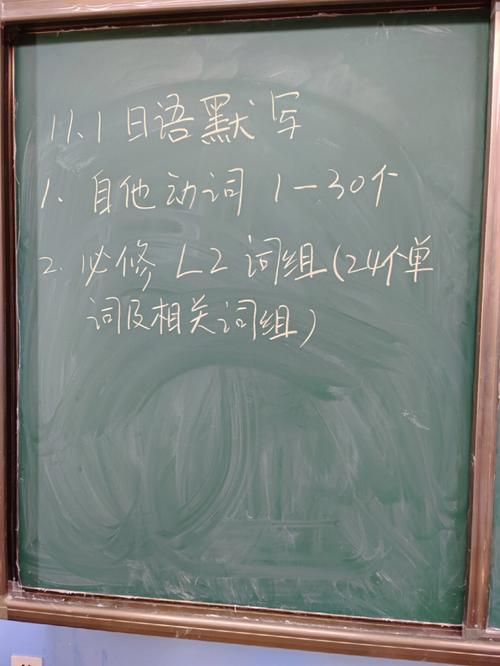 11.1日语默写
1. 自他动词 1-30个
2. 必修 L2 词组(24个单
词及相关词组)